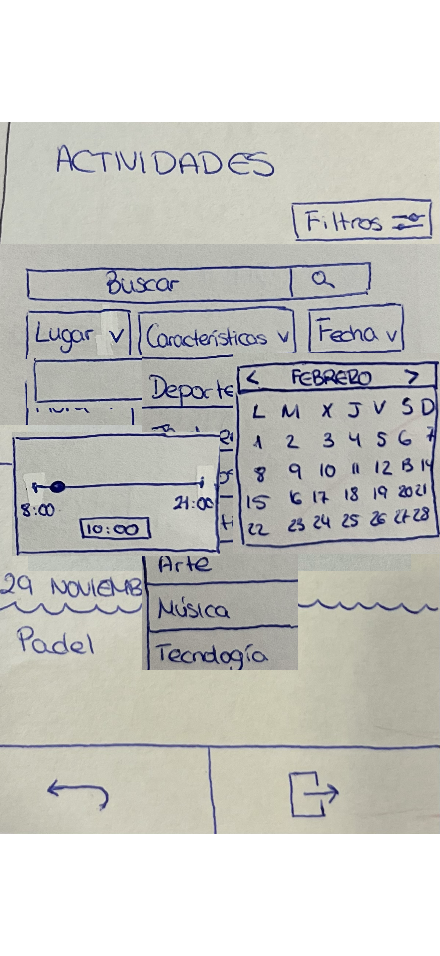 ACTIVIDADES
Filtros
Buscar
Lugar v Características v Fecha v
Deporte
< FEBRERO >
L M X J V S D
1 2 3 4 5 6 7
8 9 10 11 12 13 14
15 16 17 18 19 20 21
22 23 24 25 26 27 28
8:00 21:00
10:00
Arte
29 NOVIEMB
Música
Padel
Tecnología